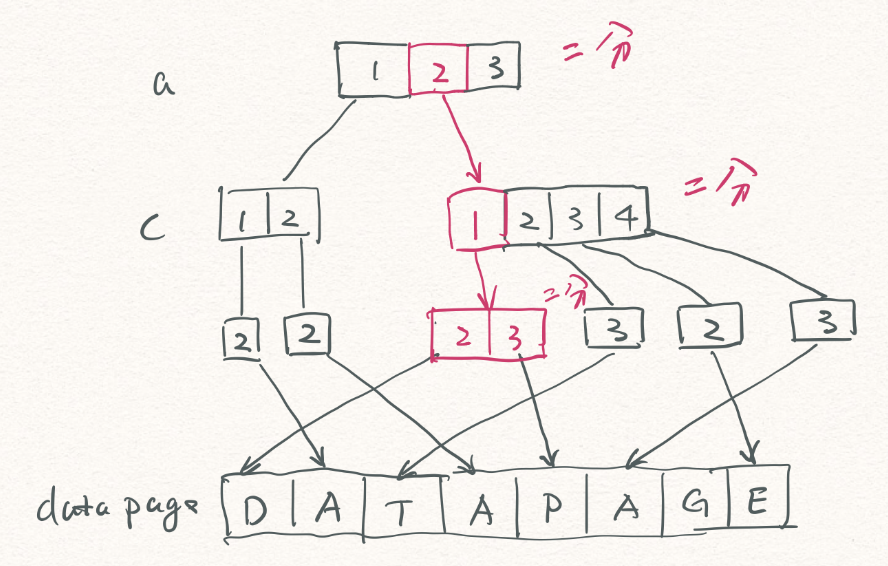 a 1 2 3 二分
c 1 2 1 2 3 4 二分
2 2 2 3 二分 3 2 3
data page D A T A P A G E